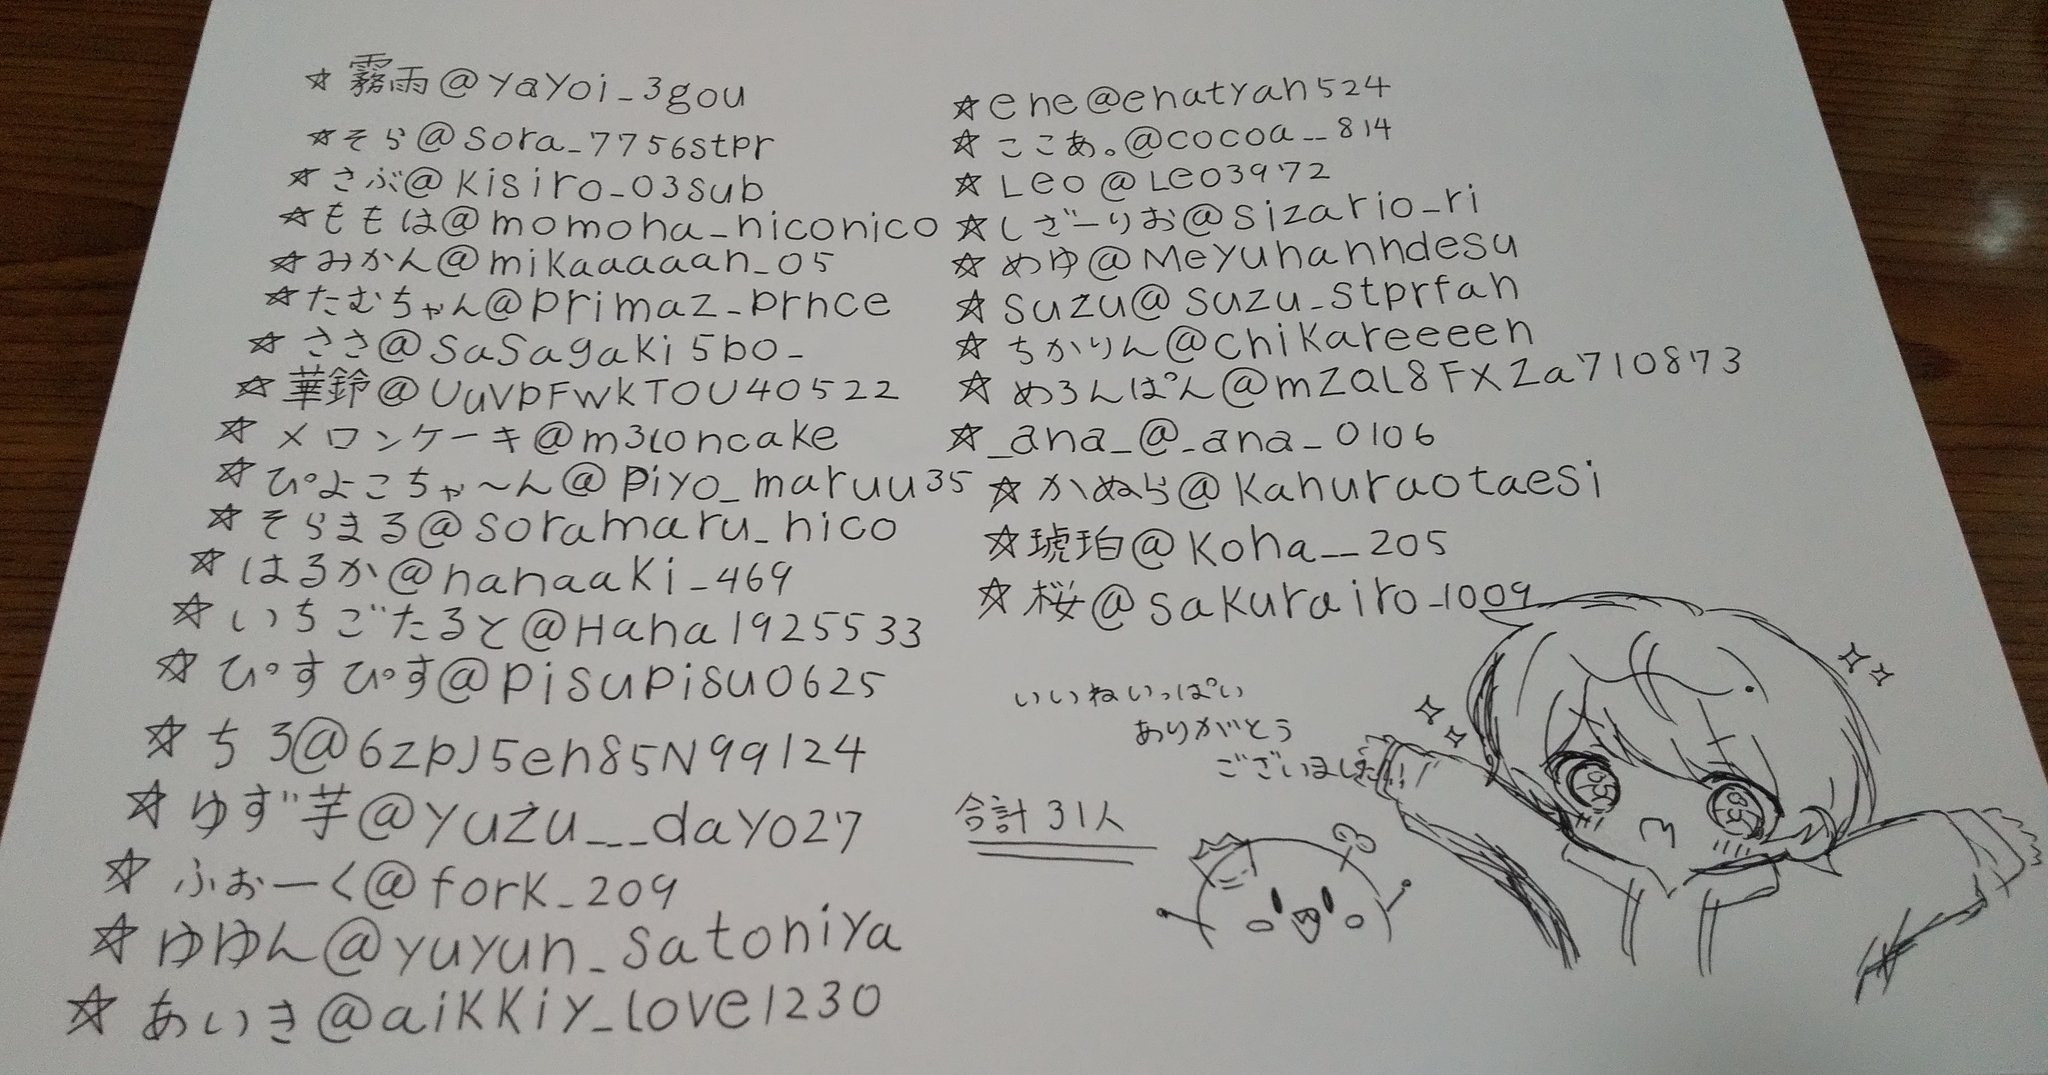 ☆霧雨@yayoi_3gou
☆そら@sora_7756stpr
☆さぶ@kisiro_03sub
☆ももは@momoha_niconico
☆みかん@mikaaaaan_05
☆たむちゃん@primaz_prnce
☆ささ@sasagaki5bo_
☆華鈴@UuVpFwkTOU40522
☆メロンケーキ@m3loncake
☆ぴよこちゃ～ん@piyo_maruu35
☆そらまる@soramaru_nico
☆はるか@hanaaki_469
☆いちごたると@Hana1925533
☆ぴすぴす@pisupisu0625
☆ちろ@6zpJ5en85N99124
☆ゆず芋@yuzu___dayo27
☆ふぉーく@fork_209
☆ゆゆん@yuyun_satoniya
☆あいき@aikkiy_love1230
☆ene@enatyan524
☆ここあ。@cocoa__814
☆Leo@Leo3972
☆しざーりお@sizario_ri
☆めゆ@Meyuhanndesu
☆suzu@suzu_stprfan
☆ちかりん@chikareeeen
☆めろんぱん@mZQL8FXZa710873
☆_ana_@_ana_0106
☆かぬら@kanuraotaesi
☆琥珀@koha__205
☆桜@sakurairo_1009
いいねいっぱい
ありがとう
ございました!!
合計31人